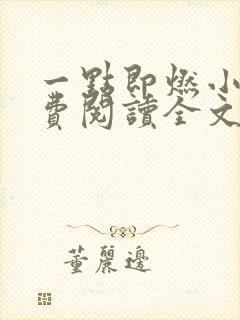 一點即燃小
費閱讀全文
董麗邊